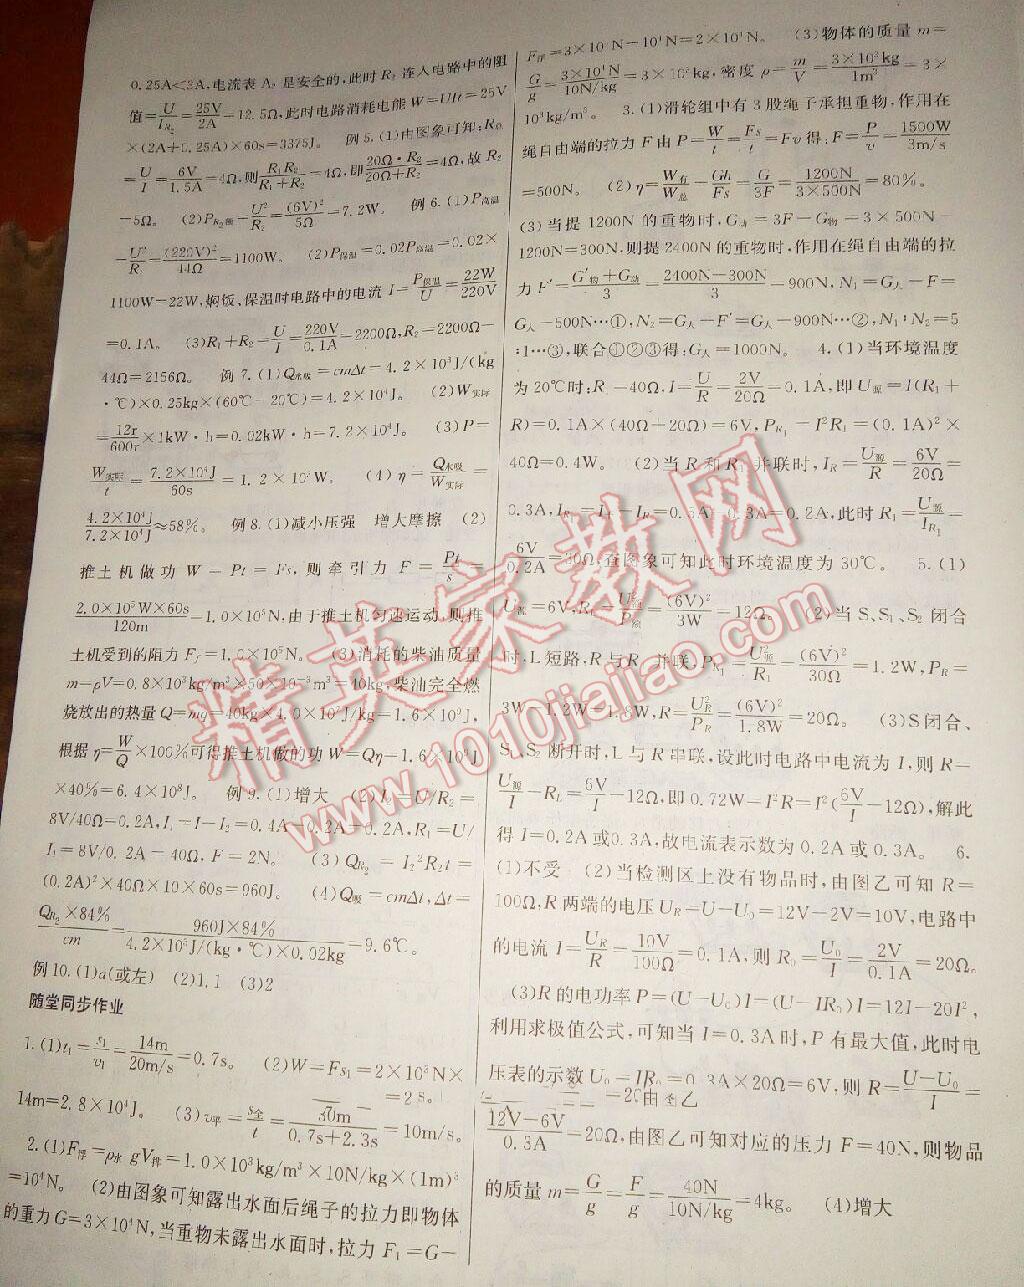 0.25A<3A,电流表 A₂ 是安全的,此时 R₂ 连入电路中的阻
值=U/I_R₂=25V/2A=12.5Ω,此时电路消耗电能 W=UIt=25V
×(2A+0.25A)×60s=3375J。 例 5.(1)由图象可知:
=U/I=6V/1.5A=4Ω,则R₁R₂/(R₁+R₂)=4Ω,即(20Ω·R₂)/(20Ω+R₂)=4Ω,故 R₂
=5Ω。 (2)P_R₂额=U²/R₂=(6V)²/5Ω=7.2W。 例 6.(1)P高温
=U²/R=(220V)²/44Ω=1100W。 (2)P保温=0.02P高温=0.02×
1100W=22W,焖饭、保温时电路中的电流 I=P保温/U=22W/220V
=0.1A。 (3)R₁+R₂=U/I=220V/0.1A=2200Ω,R₂=2200Ω−
44Ω=2156Ω。 例 7.(1)Q水吸=cmΔt=4.2×10³J/(kg
·℃)×0.25kg×(60℃−20℃)=4.2×10⁴J。 (2)W实际
=12r/600r×1kW·h=0.02kW·h=7.2×10⁴J。 (3)P=
W实际/t=7.2×10⁴J/60s=1.2×10³W。 (4)η=Q水吸/W实际=
4.2×10⁴J/7.2×10⁴J≈58%。 例 8.(1)减小压强 增大摩擦 (2)
推土机做功 W=Pt=Fs,则牵引力 F=Pt/s=
2.0×10⁵W×60s/120m=1.0×10⁵N,由于推土机匀速运动,则推
土机受到的阻力 F_f=1.0×10⁵N。 (3)消耗的柴油质量
m=ρV=0.8×10³kg/m³×50×10⁻³m³=40kg,柴油完全燃
烧放出的热量 Q=mq=40kg×4.0×10⁷J/kg=1.6×10⁹J,
根据 η=W/Q×100%可得推土机做的功 W=Qη=1.6×10⁹J
×40%=6.4×10⁸J。 例 9.(1)增大 (2)I₂=U/R₂=
8V/40Ω=0.2A,I₁=I−I₂=0.4A−0.2A=0.2A,R₁=U/
I₁=8V/0.2A=40Ω,F=2N。 (3)Q_R₂=I₂²R₂t=
(0.2A)²×40Ω×10×60s=960J。 (4)Q吸=cmΔt,Δt=
Q_R₂×84%/cm=960J×84%/(4.2×10³J/(kg·℃)×0.02kg)=9.6℃。
例 10.(1)a(或左) (2)1.1 (3)2
随堂同步作业
1.(1)t₁=s₁/v₁=14m/20m/s=0.7s。 (2)W=Fs₁=2×10³N×
14m=2.8×10⁴J。 (3)v平=s全/t=30m/(0.7s+2.3s)=10m/s。
2.(1)F浮=ρ水gV排=1.0×10³kg/m³×10N/kg×(1m)³
=10⁴N。 (2)由图象可知露出水面后绳子的拉力即物体
的重力 G=3×10⁴N,当重物未露出水面时,拉力 F₁=G−
F浮=3×10⁴N−10⁴N=2×10⁴N。 (3)物体的质量 m=
G/g=3×10⁴N/10N/kg=3×10³kg,密度 ρ=m/V=3×10³kg/1m³=3×
10³kg/m³。 3.(1)滑轮组中有 3 股绳子承担重物,作用在
绳自由端的拉力 F 由 P=W/t=Fs/t=Fv 得:F=P/v=1500W/3m/s
=500N。 (2)η=W有/W总=Gh/Fs=G/3F=1200N/(3×500N)=80%。
(3)当提 1200N 的重物时,G动=3F−G物=3×500N−
1200N=300N,则提 2400N 的重物时,作用在绳自由端的拉
力 F′=(G′物+G动)/3=(2400N−300N)/3=900N,N₁=G人−F=
G人−500N…①,N₂=G人−F′=G人−900N…②,N₁∶N₂=5
∶1…③,联合①②③得:G人=1000N。 4.(1)当环境温度
为 20℃时:R=40Ω,I=U/R=2V/20Ω=0.1A,即 U源=I(R₁+
R)=0.1A×(40Ω+20Ω)=6V,P_R₁=I²R₁=(0.1A)²×
40Ω=0.4W。 (2)当 R 和 R₁ 并联时,I_R=U源/R=6V/20Ω=
0.3A,I_R₁=I−I_R=0.5A−0.3A=0.2A,此时 R₁=U源/I_R₁=
6V/0.2A=30Ω,查图象可知此时环境温度为 30℃。 5.(1)
U源=6V,R_L=U额²/P额=(6V)²/3W=12Ω。 (2)当 S、S₁、S₂ 闭合
时,L 短路,R 与 R₁ 并联,P_R₁=U源²/R₁=(6V)²/30Ω=1.2W,P_R=
3W−1.2W=1.8W,R=U_R²/P_R=(6V)²/1.8W=20Ω。 (3)S 闭合、
S₁、S₂ 断开时,L 与 R 串联,设此时电路中电流为 I,则 R=
U源/I−R_L=6V/I−12Ω,即 0.72W=I²R=I²(6V/I−12Ω),解此
得 I=0.2A 或 0.3A,故电流表示数为 0.2A 或 0.3A。 6.
(1)不受 (2)当检测区上没有物品时,由图乙可知 R=
100Ω,R 两端的电压 U_R=U−U₀=12V−2V=10V,电路中
的电流 I=U_R/R=10V/100Ω=0.1A,则 R₀=U₀/I=2V/0.1A=20Ω。
(3)R 的电功率 P=(U−U₀)I=(U−IR₀)I=12I−20I²,
利用求极值公式,可知当 I=0.3A 时,P 有最大值,此时电
压表的示数 U₀=IR₀=0.3A×20Ω=6V,则 R=(U−U₀)/I=
(12V−6V)/0.3A=20Ω,由图乙可知对应的压力 F=40N,则物品
的质量 m=G/g=F/g=40N/10N/kg=4kg。 (4)增大
精英家教网
www.1010jiajiao.com